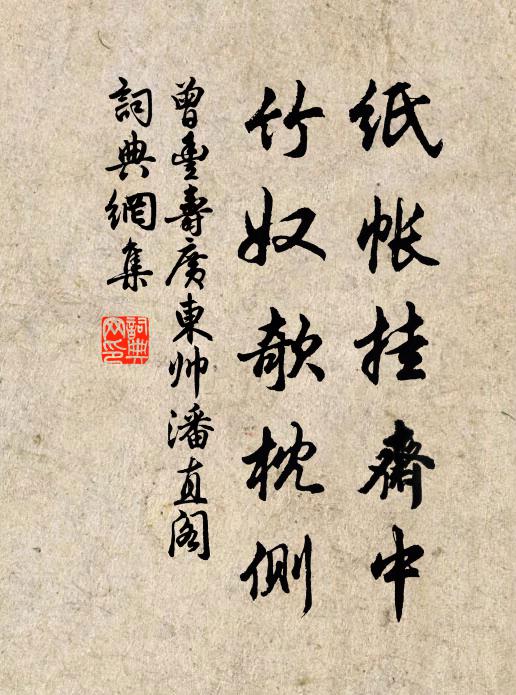 纸帐挂斋中
竹奴欹枕侧
曾丰壽廣東帅潘直阁
詞典網集
詞典
网印